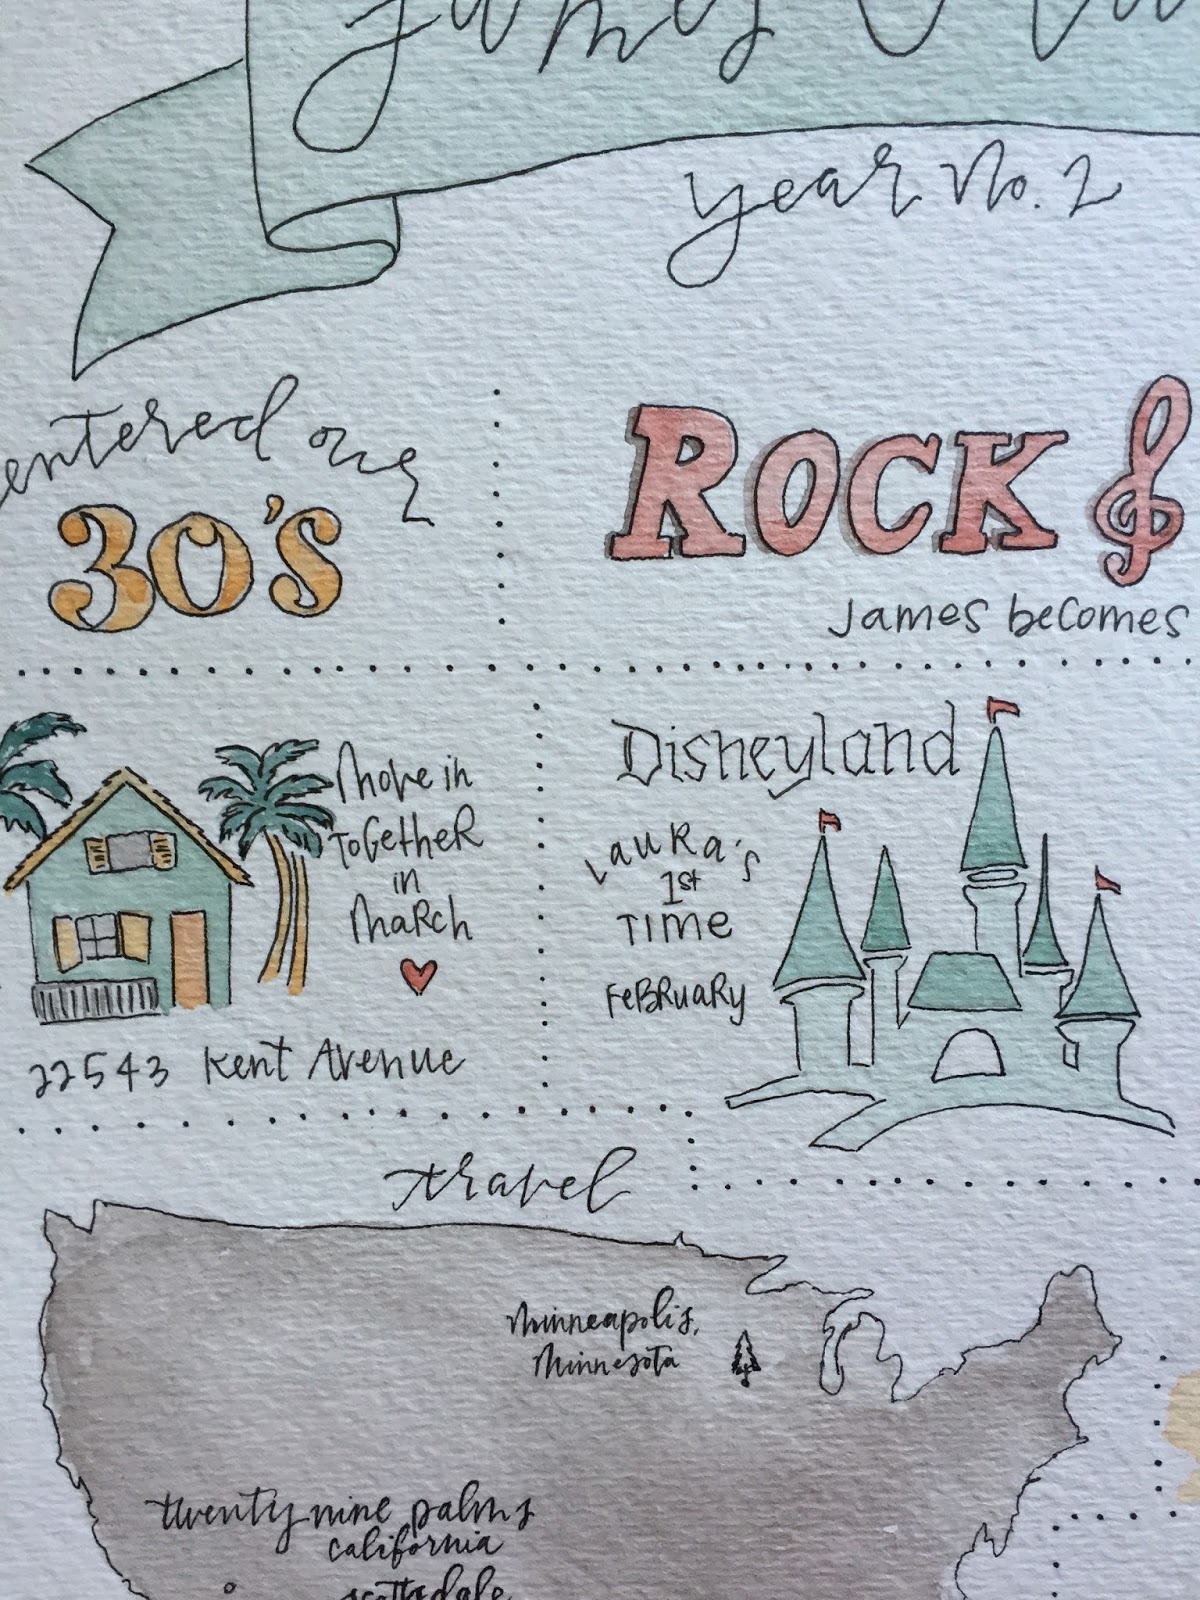 James &
year No. 2
entered our
30's
ROCK
James becomes
Move in
Together
in
March
22543 Kent Avenue
Disneyland
Laura's
1st
Time
February
travel
Minneapolis,
Minnesota
twentynine palms
california
scottsdale